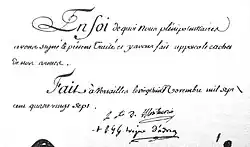 En foi de quoi Nous plénipotentiaires
avons signé le présent Traité et y avons fait apposer le cachet
de nos armes.
Fait à Versailles le vingt huit Novembre mil sept
cent quatre vingt sept.